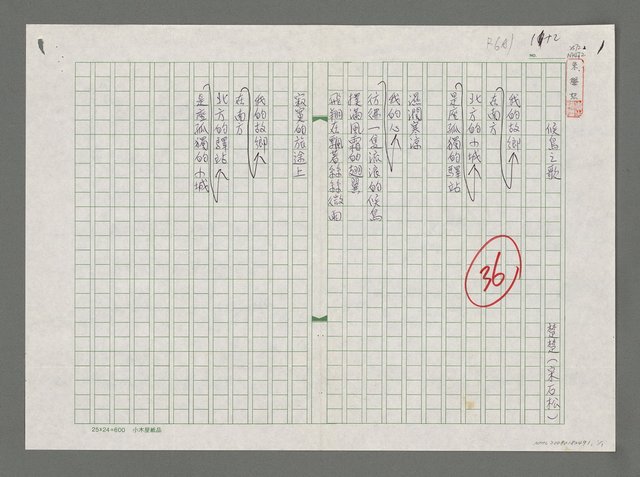 1112
NO.
候鳥之歌
楚楚(宋石松)
我的故鄉
在南方
北方的小城
是座孤獨的驛站
濕潤寒涼
我的心
彷彿一隻流浪的候鳥
撲滿風霜的翅翼
飛翔在飄著絲絲微雨
寂寞的旅途上
我的故鄉
在南方
北方的驛站
是座孤獨的小城
36
25×24=600 小木屋紙品